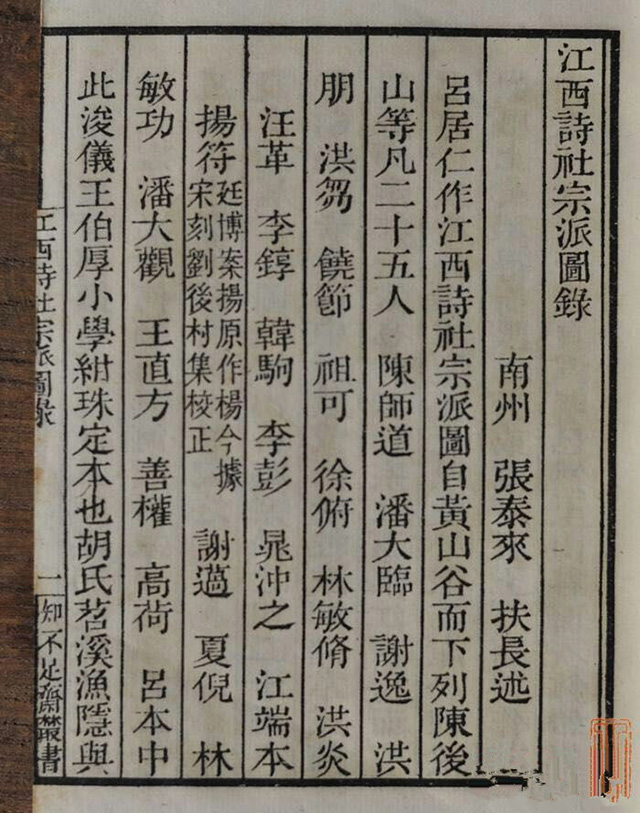 江西詩社宗派圖錄
南州 張泰來 扶長述
呂居仁作江西詩社宗派圖自黃山谷而下列陳後
山等凡二十五人 陳師道 潘大臨 謝逸 洪
朋 洪芻 饒節 祖可 徐俯 林敏脩 洪炎
汪革 李錞 韓駒 李彭 晁沖之 江端本
揚符 廷博案揚原作楊今據
宋刻劉後村集校正 謝薖 夏倪 林
敏功 潘大觀 王直方 善權 高荷 呂本中
此浚儀王伯厚小學紺珠定本也胡氏苕溪漁隱與
江西詩社宗派圖錄 一 知不足齋叢書